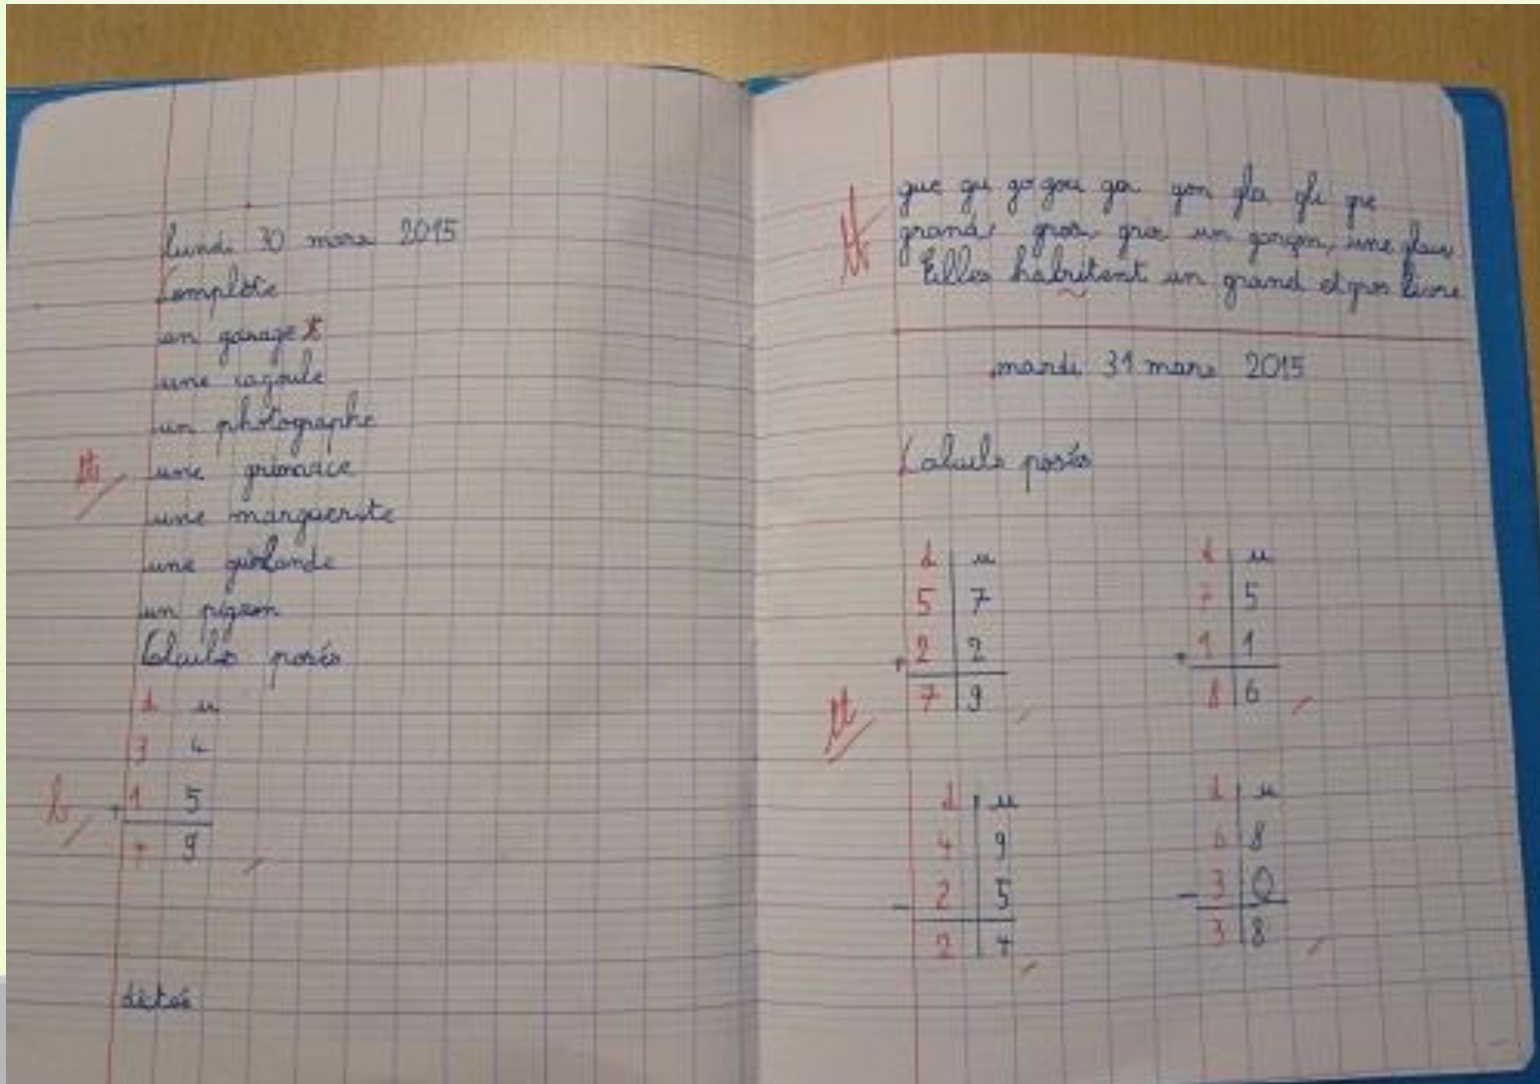 lundi 30 mars 2015
Complète
un garage
une cagoule
un photographe
une grimace
une marguerite
une guirlande
un pigeon
Calculs posés
d u
3 4
+ 1 5
4 9
dictée
gue gu go gou ga gon gla gli gre
grand gros, gris un garçon, une
Elles habitent un grand et gros livre
mardi 31 mars 2015
Calculs posés
d u
5 7
+ 2 2
7 9
d u
7 5
+ 1 1
8 6
d u
4 9
- 2 5
2 4
d u
6 8
- 3 0
3 8